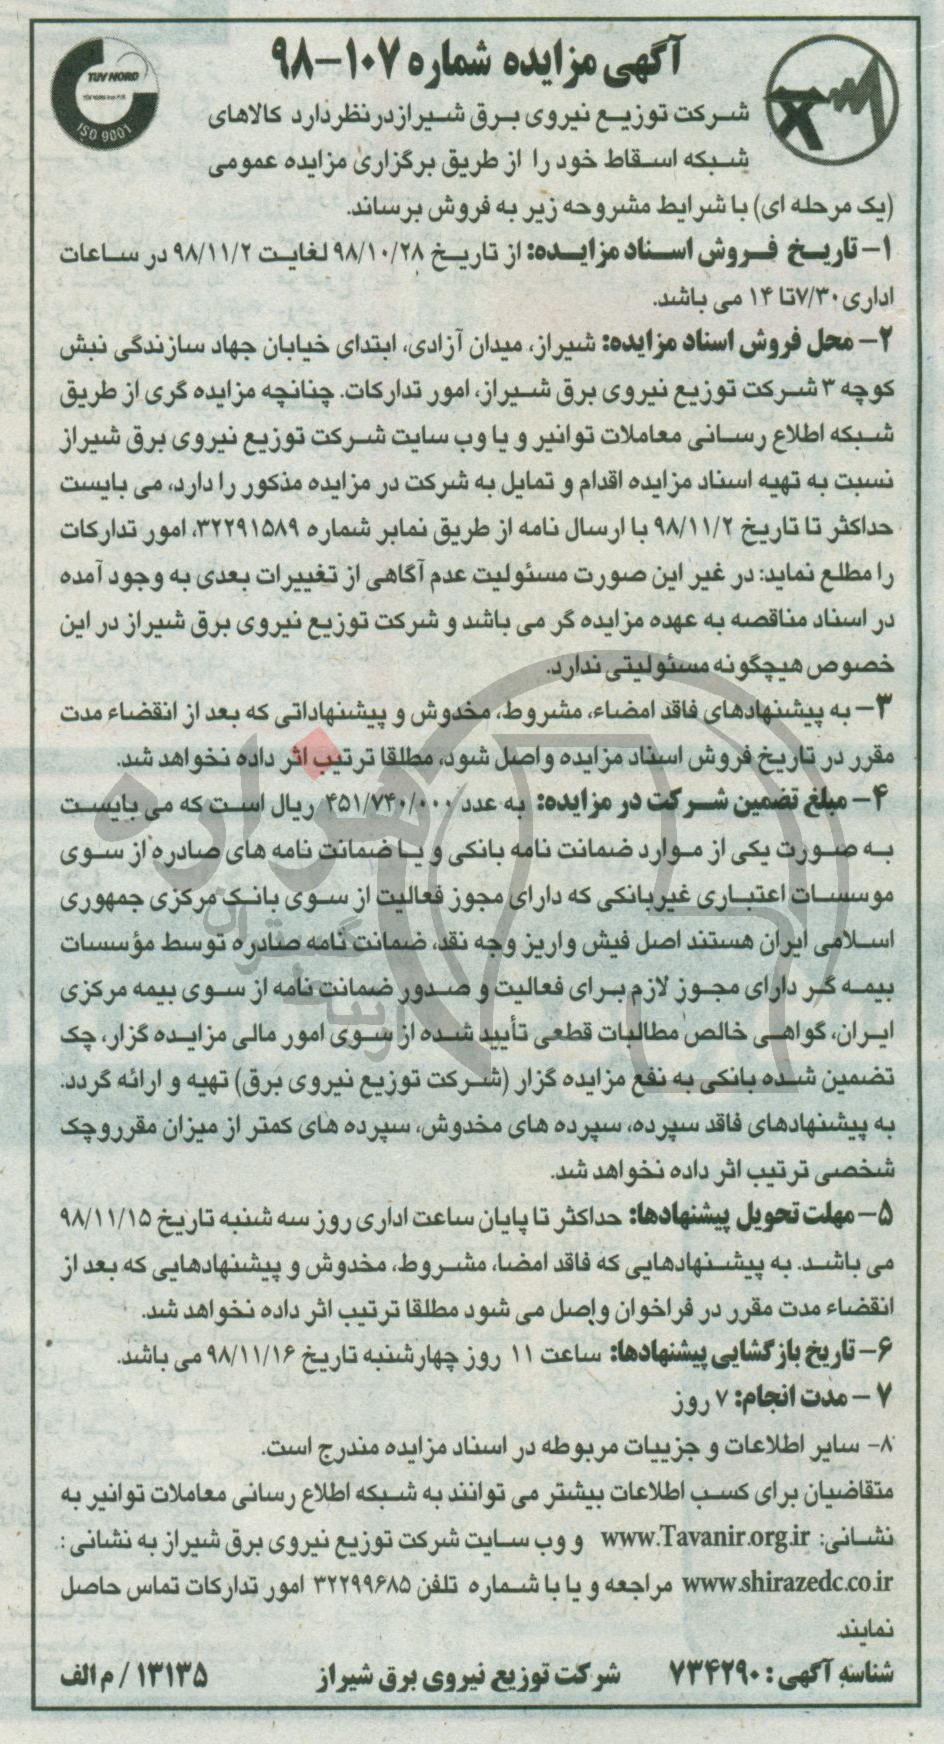 آگهی مزایده شماره ۱۰۷-۹۸
TUV NORD
ISO 9001
شرکت توزیع نیروی برق شیراز درنظر دارد کالاهای
شبکه اسقاط خود را از طریق برگزاری مزایده عمومی
(یک مرحله ای) با شرایط مشروحه زیر به فروش برساند.
۱- تاریخ فروش اسناد مزایده: از تاریخ ۹۸/۱۰/۲۸ لغایت ۹۸/۱۱/۲ در ساعات
اداری ۷/۳۰ تا ۱۴ می باشد.
۲- محل فروش اسناد مزایده: شیراز، میدان آزادی، ابتدای خیابان جهاد سازندگی نبش
کوچه ۳ شرکت توزیع نیروی برق شیراز، امور تدارکات. چنانچه مزایده گری از طریق
شبکه اطلاع رسانی معاملات توانیر و یا وب سایت شرکت توزیع نیروی برق شیراز
نسبت به تهیه اسناد مزایده اقدام و تمایل به شرکت در مزایده مذکور را دارد، می بایست
حداکثر تا تاریخ ۹۸/۱۱/۲ با ارسال نامه از طریق نمابر شماره ۳۲۲۹۱۵۸۹، امور تدارکات
را مطلع نماید: در غیر این صورت مسئولیت عدم آگاهی از تغییرات بعدی به وجود آمده
در اسناد مناقصه به عهده مزایده گر می باشد و شرکت توزیع نیروی برق شیراز در این
خصوص هیچگونه مسئولیتی ندارد.
۳- به پیشنهادهای فاقد امضاء، مشروط، مخدوش و پیشنهاداتی که بعد از انقضاء مدت
مقرر در تاریخ فروش اسناد مزایده واصل شود، مطلقا ترتیب اثر داده نخواهد شد.
۴- مبلغ تضمین شرکت در مزایده: به عدد ۴۵۱/۷۴۰/۰۰۰ ریال است که می بایست
به صورت یکی از موارد ضمانت نامه بانکی و یا ضمانت نامه های صادره از سوی
موسسات اعتباری غیربانکی که دارای مجوز فعالیت از سوی بانک مرکزی جمهوری
اسلامی ایران هستند اصل فیش واریز وجه نقد، ضمانت نامه صادره توسط مؤسسات
بیمه گر دارای مجوز لازم برای فعالیت و صدور ضمانت نامه از سوی بیمه مرکزی
ایران، گواهی خالص مطالبات قطعی تأیید شده از سوی امور مالی مزایده گزار، چک
تضمین شده بانکی به نفع مزایده گزار (شرکت توزیع نیروی برق) تهیه و ارائه گردد.
به پیشنهادهای فاقد سپرده، سپرده های مخدوش، سپرده های کمتر از میزان مقرر و چک
شخصی ترتیب اثر داده نخواهد شد.
۵- مهلت تحویل پیشنهادها: حداکثر تا پایان ساعت اداری روز سه شنبه تاریخ ۹۸/۱۱/۱۵
می باشد. به پیشنهادهایی که فاقد امضا، مشروط، مخدوش و پیشنهادهایی که بعد از
انقضاء مدت مقرر در فراخوان واصل می شود مطلقا ترتیب اثر داده نخواهد شد.
۶- تاریخ بازگشایی پیشنهادها: ساعت ۱۱ روز چهارشنبه تاریخ ۹۸/۱۱/۱۶ می باشد.
۷- مدت انجام: ۷ روز
۸- سایر اطلاعات و جزییات مربوطه در اسناد مزایده مندرج است.
متقاضیان برای کسب اطلاعات بیشتر می توانند به شبکه اطلاع رسانی معاملات توانیر به
نشانی: www.Tavanir.org.ir و وب سایت شرکت توزیع نیروی برق شیراز به نشانی:
www.shirazedc.co.ir مراجعه و یا با شماره تلفن ۳۲۲۹۹۶۸۵ امور تدارکات تماس حاصل
نمایند.
شناسه آگهی: ۷۳۴۲۹۰ شرکت توزیع نیروی برق شیراز ۱۳۱۳۵/م الف